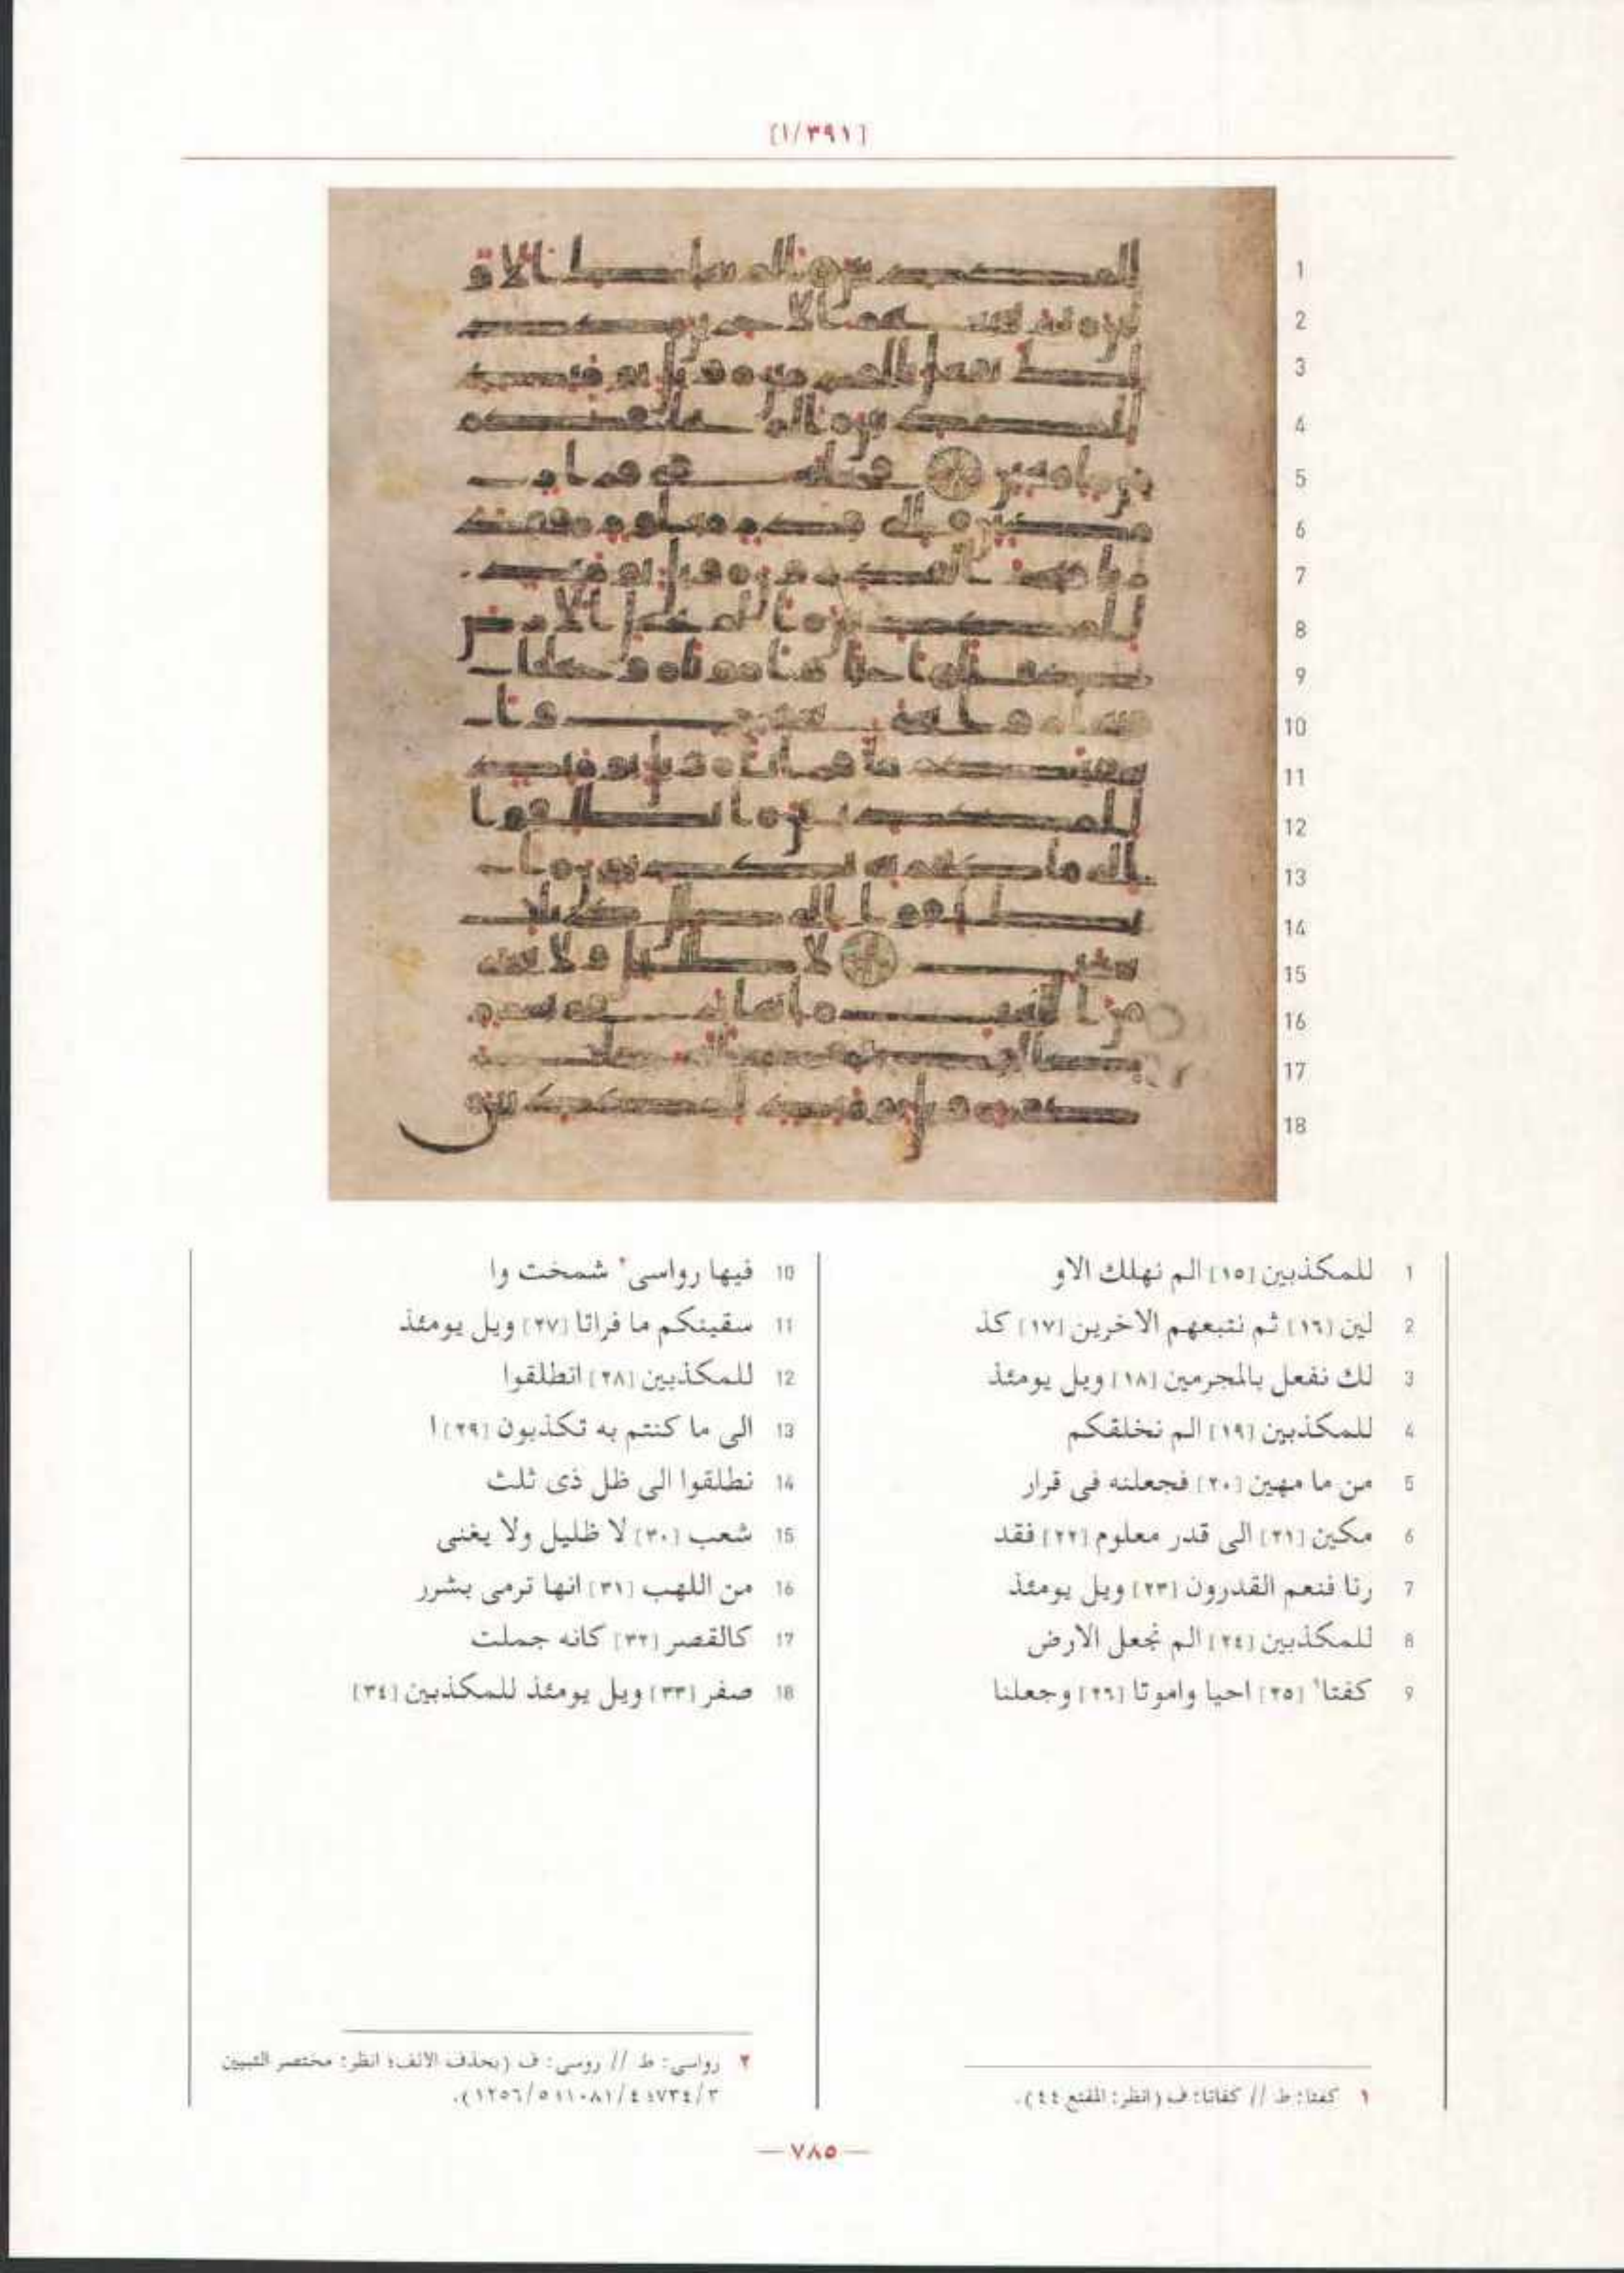 [٣٩١/١]
1 للمكذبين [١٥] الم نهلك الاو
2 لين [١٦] ثم نتبعهم الاخرين [١٧] كذ
3 لك نفعل بالمجرمين [١٨] ويل يومئذ
4 للمكذبين [١٩] الم نخلقكم
5 من ما مهين [٢٠] فجعلنه فى قرار
6 مكين [٢١] الى قدر معلوم [٢٢] فقد
7 رنا فنعم القدرون [٢٣] ويل يومئذ
8 للمكذبين [٢٤] الم نجعل الارض
9 كفتا١ [٢٥] احيا واموتا [٢٦] وجعلنا
10 فيها رواسى٢ شمخت وا
11 سقينكم ما فراتا [٢٧] ويل يومئذ
12 للمكذبين [٢٨] انطلقوا
13 الى ما كنتم به تكذبون [٢٩] ا
14 نطلقوا الى ظل ذى ثلث
15 شعب [٣٠] لا ظليل ولا يغنى
16 من اللهب [٣١] انها ترمى بشرر
17 كالقصر [٣٢] كانه جملت
18 صفر [٣٣] ويل يومئذ للمكذبين [٣٤]
١ كفتا: ط // كفاتا: ف (انظر: المقنع ٤٤).
٢ رواسى: ط // روسى: ف (بحذف الالف؛ انظر: مختصر التبيين
— ٧٨٥ —